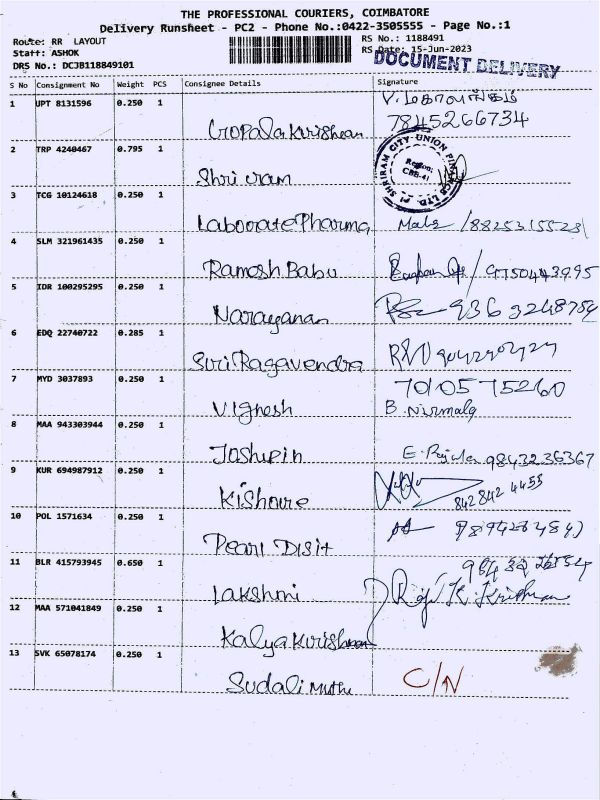 THE PROFESSIONAL COURIERS, COIMBATORE
Delivery Runsheet - PC2 - Phone No.:0422-3505555 - Page No.:1
Route: RR LAYOUT
RS No.: 1188491
Staff: ASHOK
RS Date: 15-Jun-2023
DRS No.: DCJB118849101
DOCUMENT DELIVERY
S No Consignment No Weight PCS Consignee Details Signature
1 UPT 8131596 0.250 1
7845266734
Gopala Krishnan
2 TRP 4240467 0.795 1
SHRIRAM CITY UNION FINANCE LTD.
Region:
CBE-41
Shri ram
3 TCG 10124618 0.250 1
Laborate Pharma Mala /8825315523
4 SLM 321961435 0.250 1
Ramesh Babu / 9750443995
5 IDR 100295295 0.250 1
Narayanan 9363248754
6 EDQ 22740722 0.285 1
Siri Ragavendra
7 MYD 3037893 0.250 1
7010575260
Vignesh B. Nirmala
8 MAA 943303944 0.250 1
Joshpin E. 9843236367
9 KUR 694987912 0.250 1
Kishore 842842 4455
10 POL 1571634 0.250 1
Pearl Disit
11 BLR 415793945 0.650 1
Lakshmi K. Krishnan
12 MAA 571041849 0.250 1
Kalya Krishnan
13 SVK 65078174 0.250 1
Sudali Muthu C/N